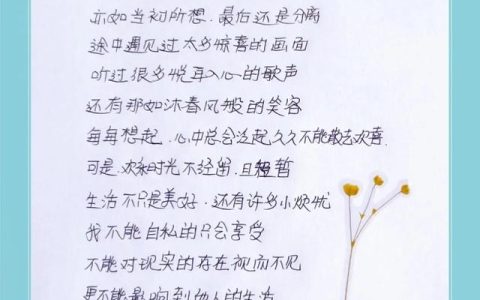 亦如当初所想.最后还是分离
途中遇见过太多惊喜的画面
听过很多悦耳入心的歌声
还有那如沐春风般的笑容
每每想起.心中总会泛起久久不能散去欢喜.
可是.欢乐时光不经留.且短暂
生活不只是美好.还有许多小烦忧
我不能自私的只会享受
不能对现实的存在视而不见
更不能影响到他人的生活